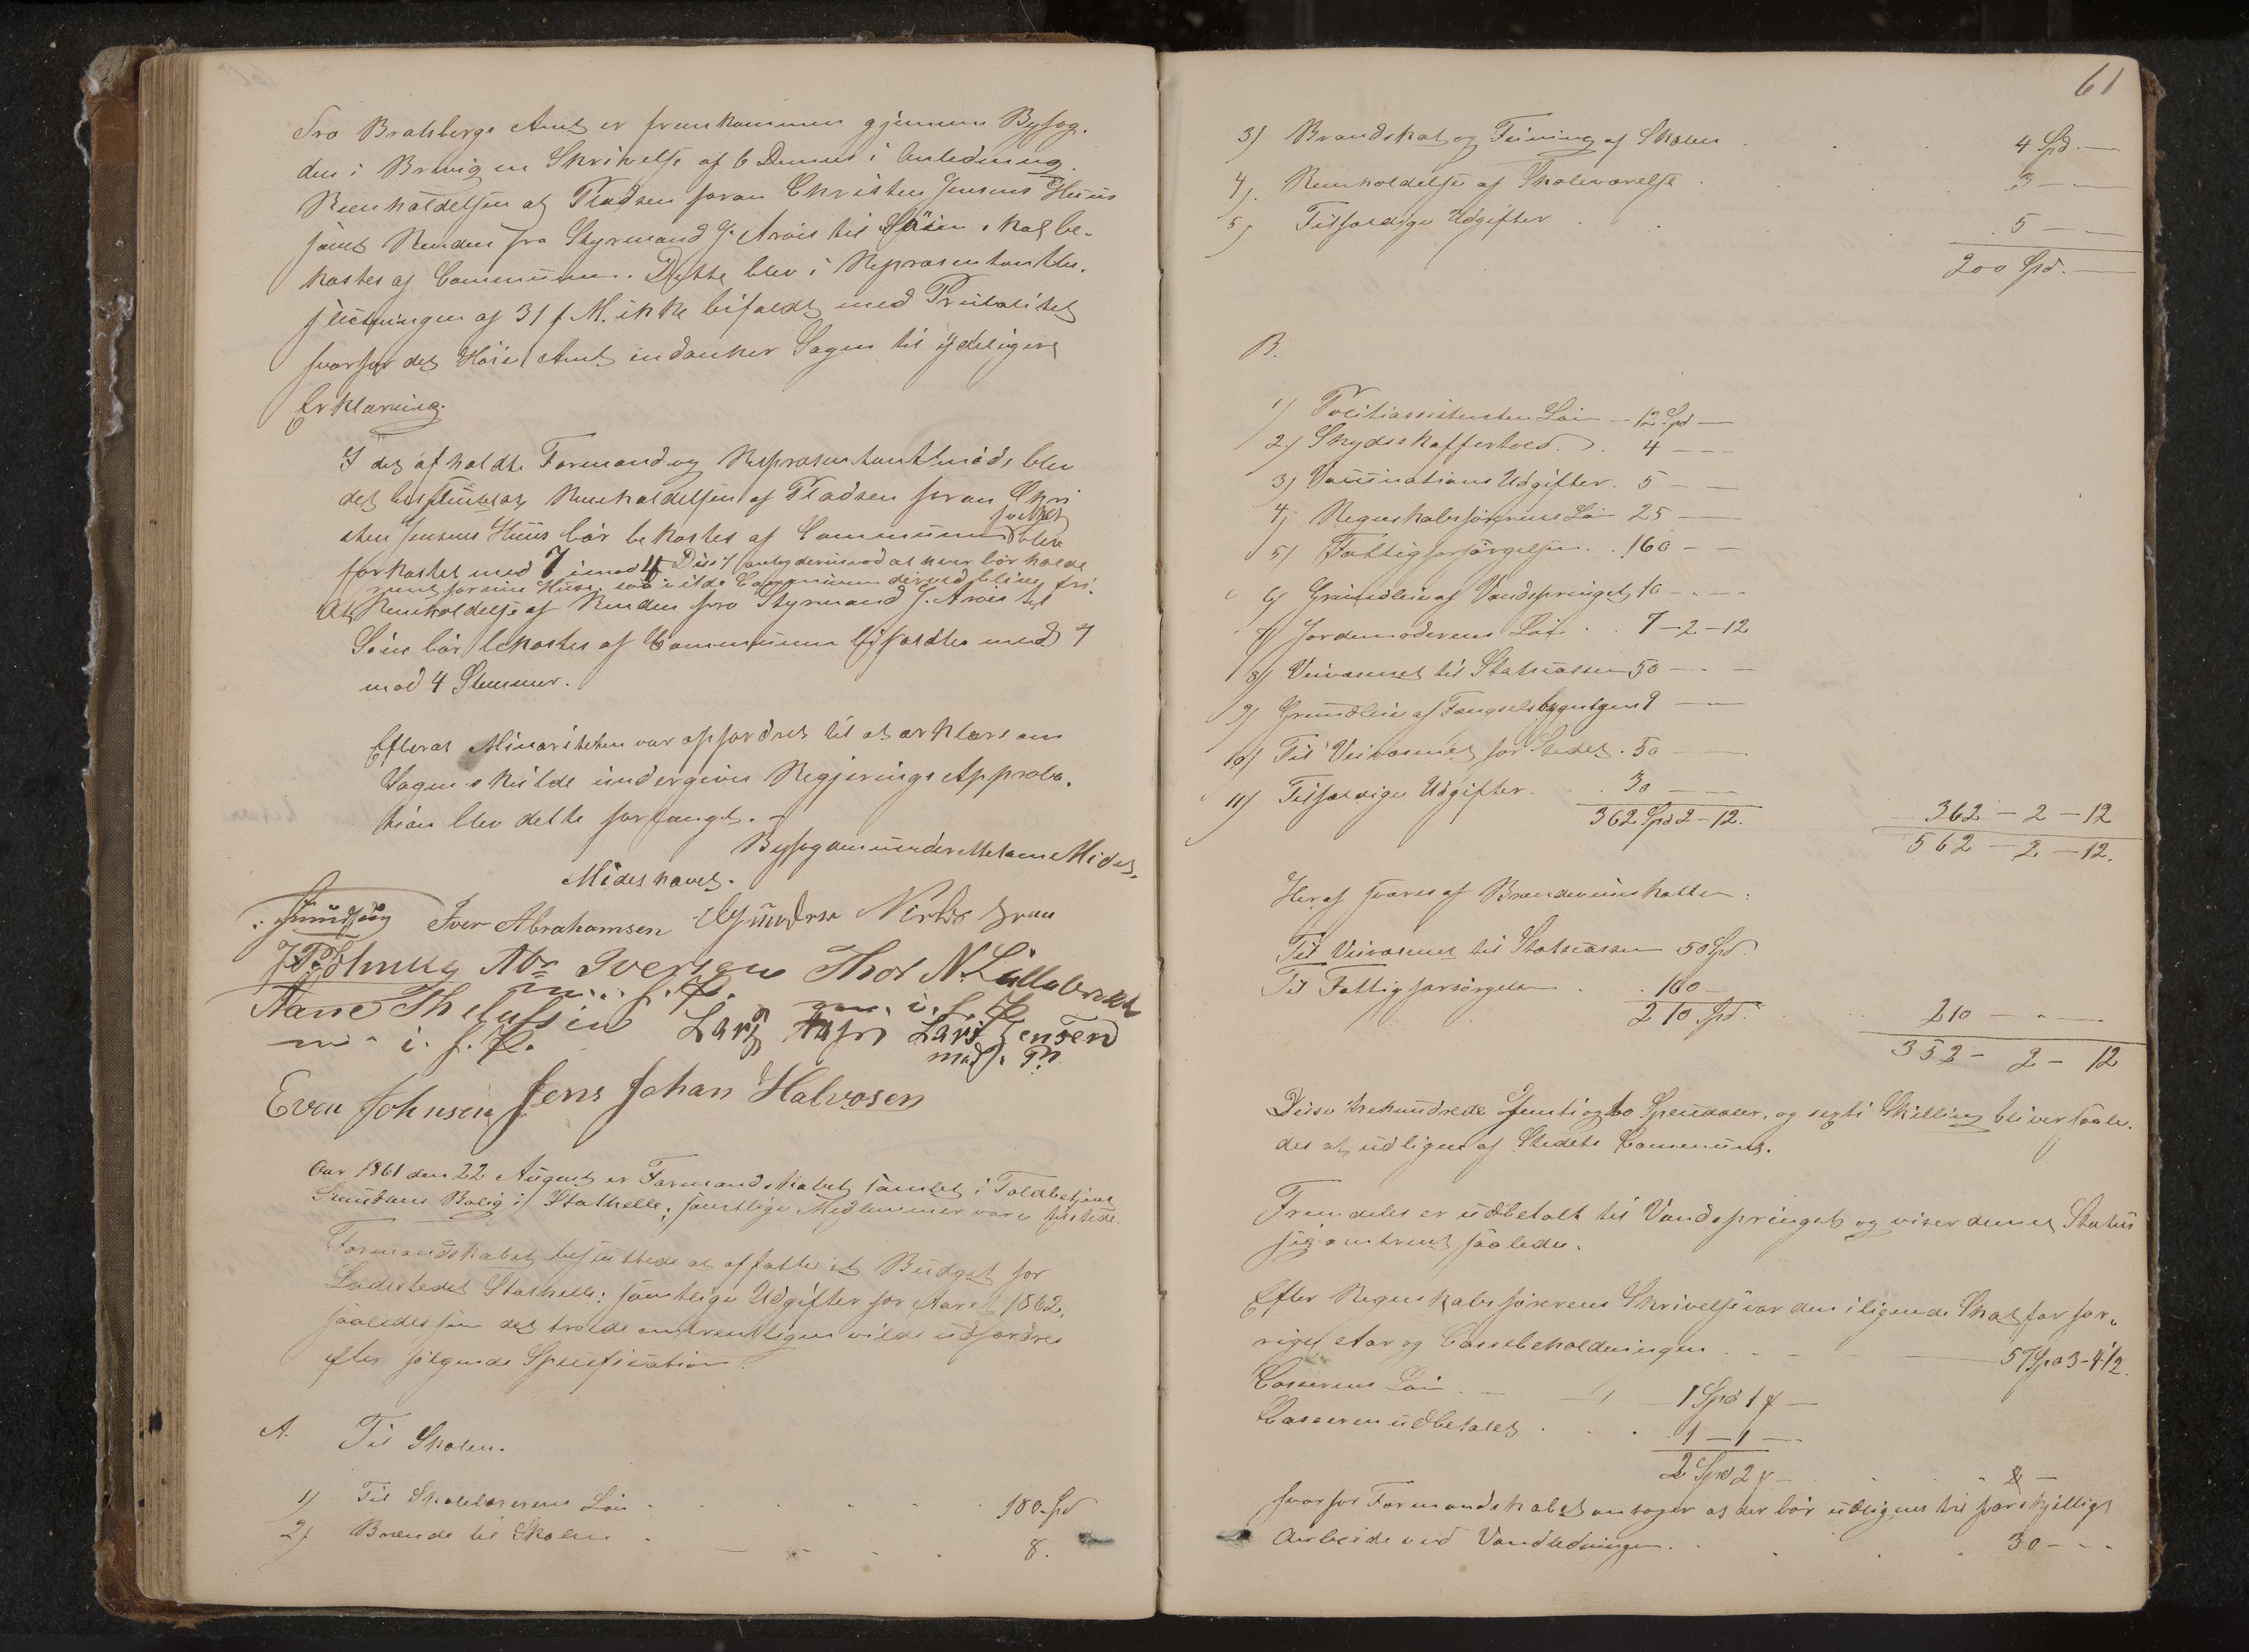 Fra Bratsbergs Amt er fremkommen gjennem Byfog-
den i Brevig en Skrivelse af 6 Dennes i Anledning
Reenholdelsen af Pladsen foran Christen Jensens Huus
samt Renden fra Styrmand J. Arøis til Søen skal be-
kostes af Communen. Dette blev i Repræsentantbe-
slutningen af 31 f. M. ikke bifaldt med
hvorfor det Høie Amt indanker Sagen til ydeligere
Erklæring.
I det afholdte Formand og Repræsentantmøde blev
det besluttet Reenholdelsen af Pladsen foran Chri
sten Jensens Huus bør bekostes af Communen hvilket blev
forkastet med 7 imod 4 Disse at hver bør holde
reent for sine Huse, Communen derved bliver fri.
At Reenholdelse af Renden fra Styrmand J. Arøis til
Søen bør bekostes af Communen bifaldtes med 7
mod 4 Stemmer.
Efterat Minoriteten var opfordret til at erklære om
Sagen skulde undergives Regjerings Approba-
tion blev dette forlangt. –
Byfogden underrettet om Mødet.
Mødet hævet.
Iver Abrahamsen Gundersen
Abr Iversen Thor N. Lillebrekt
m. i. f. P. m. i. f. P.
Lars Lars Jensen
m. i. f. P. med f. P.
Even Johnsen Jens Johan Halvosen
Aar 1861 den 22 August er Formandskabet samlet i Toldbetjent
Bolig i Stathelle; samtlige Medlemmer vare tilstede.
Formandskabet besluttede at affatte et Budget for
Ladestedet Stathelle; samtlige Udgifter for Aaret 1862,
saaledes som det troede omtrentligen vilde udfordres
efter følgende Specification.
A. Til Skolen.
1) Til Skolelærerens Løn . . . . . 180 Spd
2) Brænde til Skolen . – – . . 8.
61
3) Brandskat og Feining af Skolen . . . 4 Spd. —
4) Reenholdelse af Skoleværelse . . . 3 — —
5) Tilfældige Udgifter . . . 5 — —
200 Spd. —
B.
1) Politiassistenten Løn — 12 Spd —
2) Skydsskafferhold . . 4 – – –
3) Vaccinations Udgifter . 5 – –
4) Regnskabsførerens Løn 25 —
5) Fattigforsørgelsen . . 160 – –
6) Grundleie af Vandspringet 10 – . –
7) Jordemoderens Løn . . 7 – 2 – 12
8) Veivæsenet til Statscassen 50 – . –
9) Grundleie af Fængselsbygnigen 9 —
10) Til Veivæsenet for Stedet . 50 —
11) Tilfældige Udgifter . . 30 — —
362 Spd 2 – 12. 362 – 2 – 12
562 – 2 – 12.
Heraf svares af Brændeviinskatten:
Til Veivæsenet til Statscassen 50 Spd.
Til Fattigforsørgelsen . . 160 –
210 Spd. . . 210 – . —
352 – 2 – 12
Disse trehundrede femti og to Speciedaler, og sexti Skilling bliver saale-
des at udligne af Stedets Commune.
Fremdeles er udbetalt til Vandspringet og viser dennes Status
sig omtrent saaledes.
Efter Regnskabsførerens Skrivelse var den iligende Skat for for-
rige Aar og Cassebeholdningen . – – — 57 Spd 3 – 4 1/2.
Cassererens Løn . – — 1 Spd 1 ₰ —
Casseren udbetalt . . . 1 — 1 —
2 Spd 2 ₰ – . . .
hvorfor Formandskabet antager at der bør udlignes til forskjelligt
Arbeide ved Vandledningen. . . . . 30 – – –